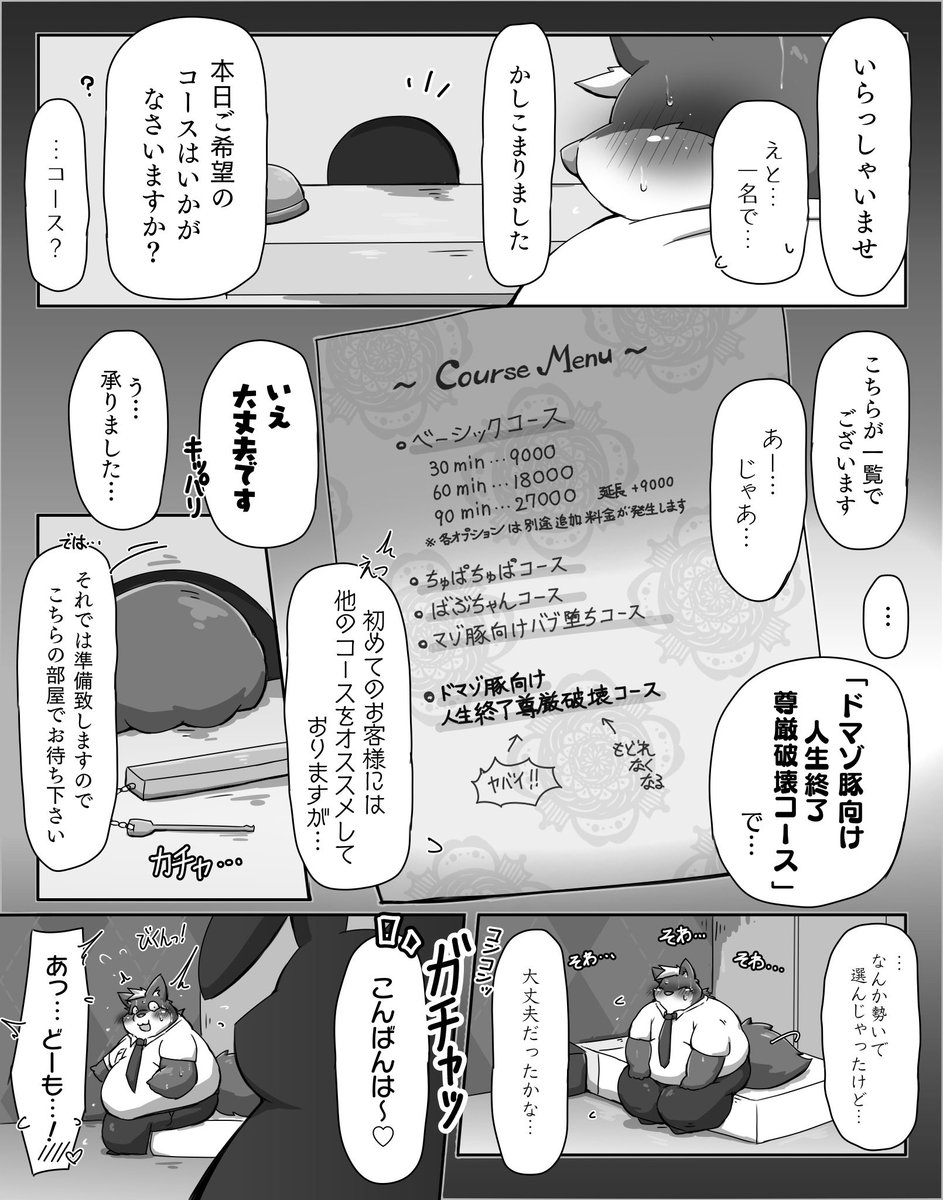 いらっしゃいませ
えと…
一名で…
かしこまりました
本日ご希望の
コースはいかが
なさいますか？
？
…コース？
こちらが一覧で
ございます
あー…
じゃあ…
～ Course Menu ～
ベーシックコース
30 min…9000
60 min…18000
90 min…27000 延長+9000
※各オプションは別途追加料金が発生します
ちゅぱちゅぱコース
ばぶちゃんコース
マゾ豚向けバブ堕ちコース
ドマゾ豚向け
人生終了尊厳破壊コース
ヤバイ!!
もどれ
なく
なる
…
「ドマゾ豚向け
人生終了
尊厳破壊コース」
で…
えっ
初めてのお客様には
他のコースをオススメして
おりますが…
いえ
大丈夫です
キッパリ
う…
承りました…
では…
それでは準備致しますので
こちらの部屋でお待ち下さい
カチャ…
…
なんか勢いで
選んじゃったけど…
そわ…
そわ…
そわ…
大丈夫だったかな…
コンコンッ
ガチャッ
こんばんは～♡
びくんっ!
あっ…どーも…！